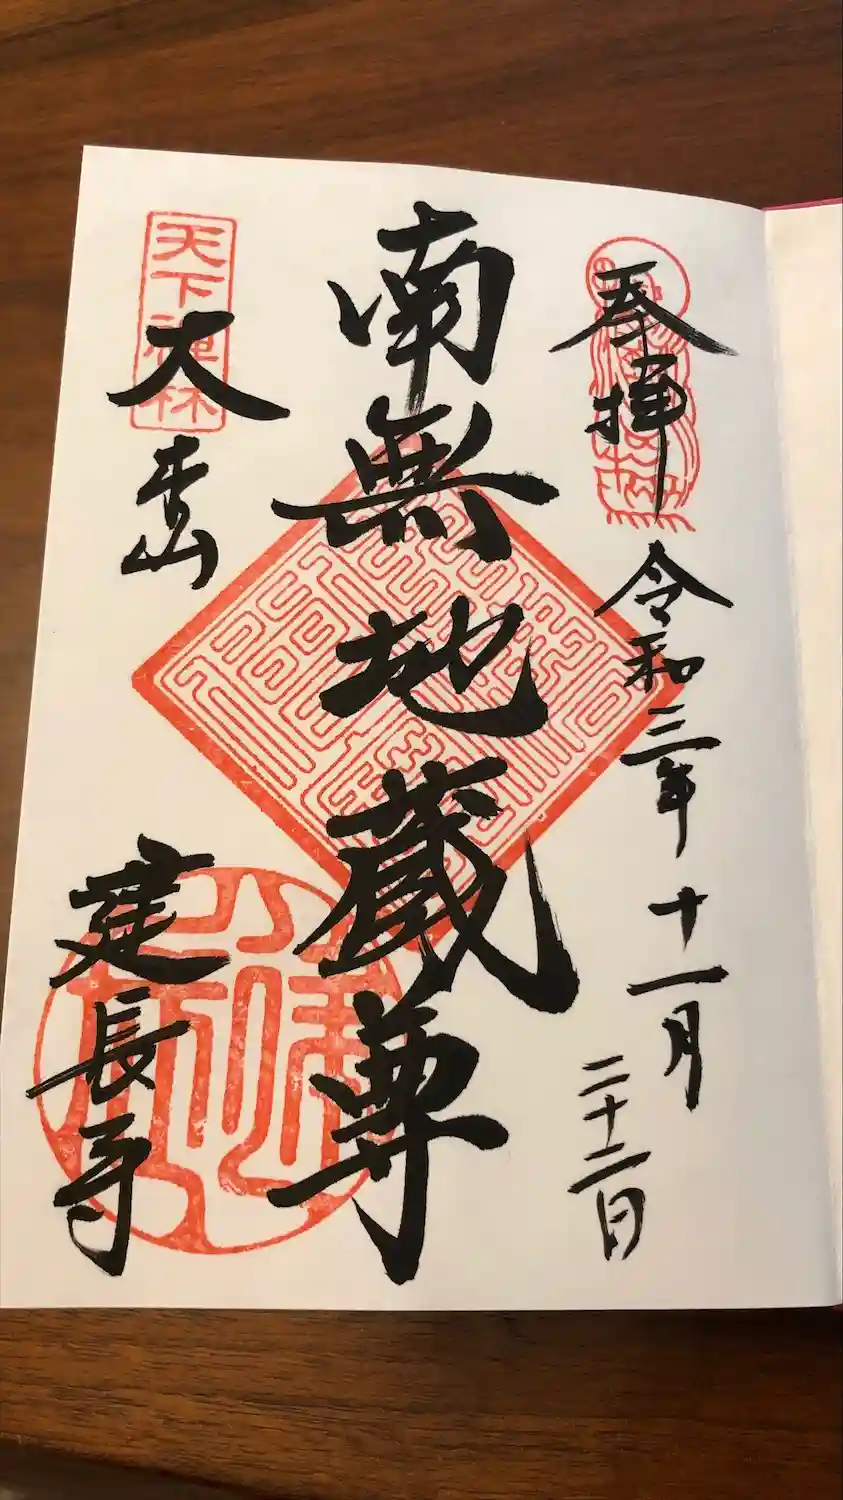 奉拝
令和三年
十一月
二十二日
南無地蔵尊
天下禪林
大本山
建長寺